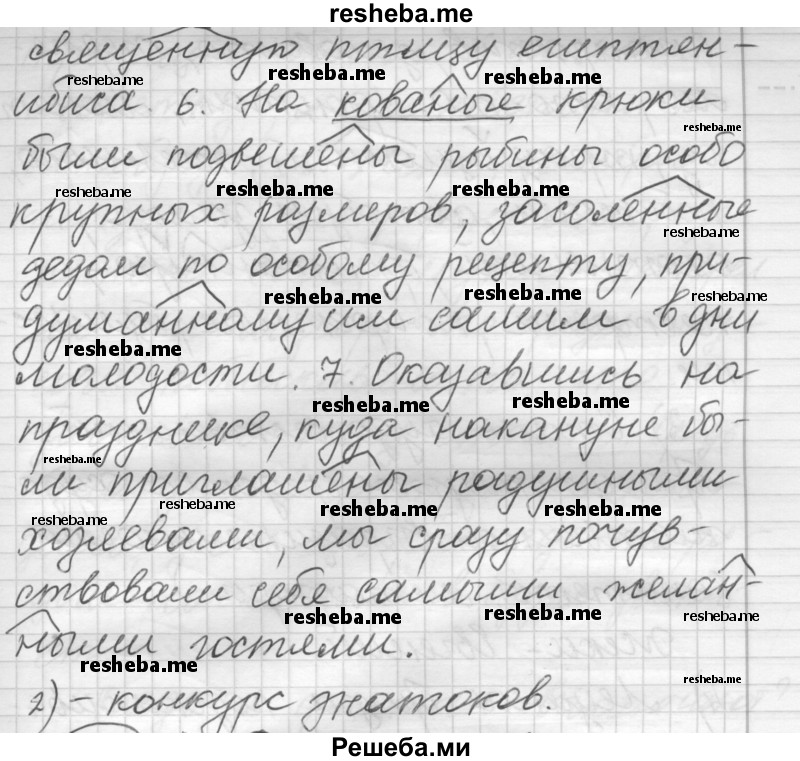 resheba.me
священную птицу египтян -
resheba.me resheba.me resheba.me
ибиса. 6. На кованые крюки
resheba.me
были подвешены рыбины особо
resheba.me resheba.me resheba.me
крупных размеров, засоленные
resheba.me
дедом по особому рецепту, при-
resheba.me resheba.me resheba.me
думанному им самим в дни
resheba.me
молодости. 7. Оказавшись на
resheba.me resheba.me
празднике, куда накануне бы-
resheba.me
ли приглашены радушными
resheba.me resheba.me resheba.me resheba.me
хозяевами, мы сразу почув-
ствовали себя самыми желан-
resheba.me resheba.me resheba.me
ными гостями.
resheba.me resheba.me
2) - конкурс знатоков.
Решеба.ми